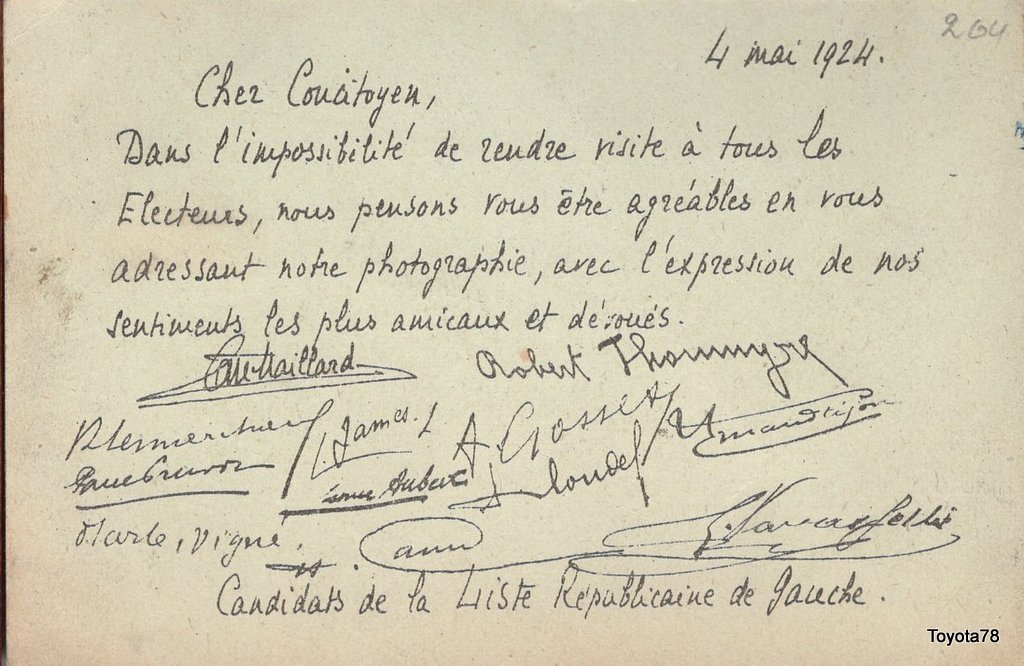 204
4 mai 1924.
Cher Concitoyen,
Dans l'impossibilité de rendre visite à tous les
Electeurs, nous pensons vous être agréables en vous
adressant notre photographie, avec l'expression de nos
sentiments les plus amicaux et dévoués.
Robert Thoumyre
James. L A. Gosset
Aubert
Marle, Vigné.
Candidats de la Liste Républicaine de Gauche.
Toyota78